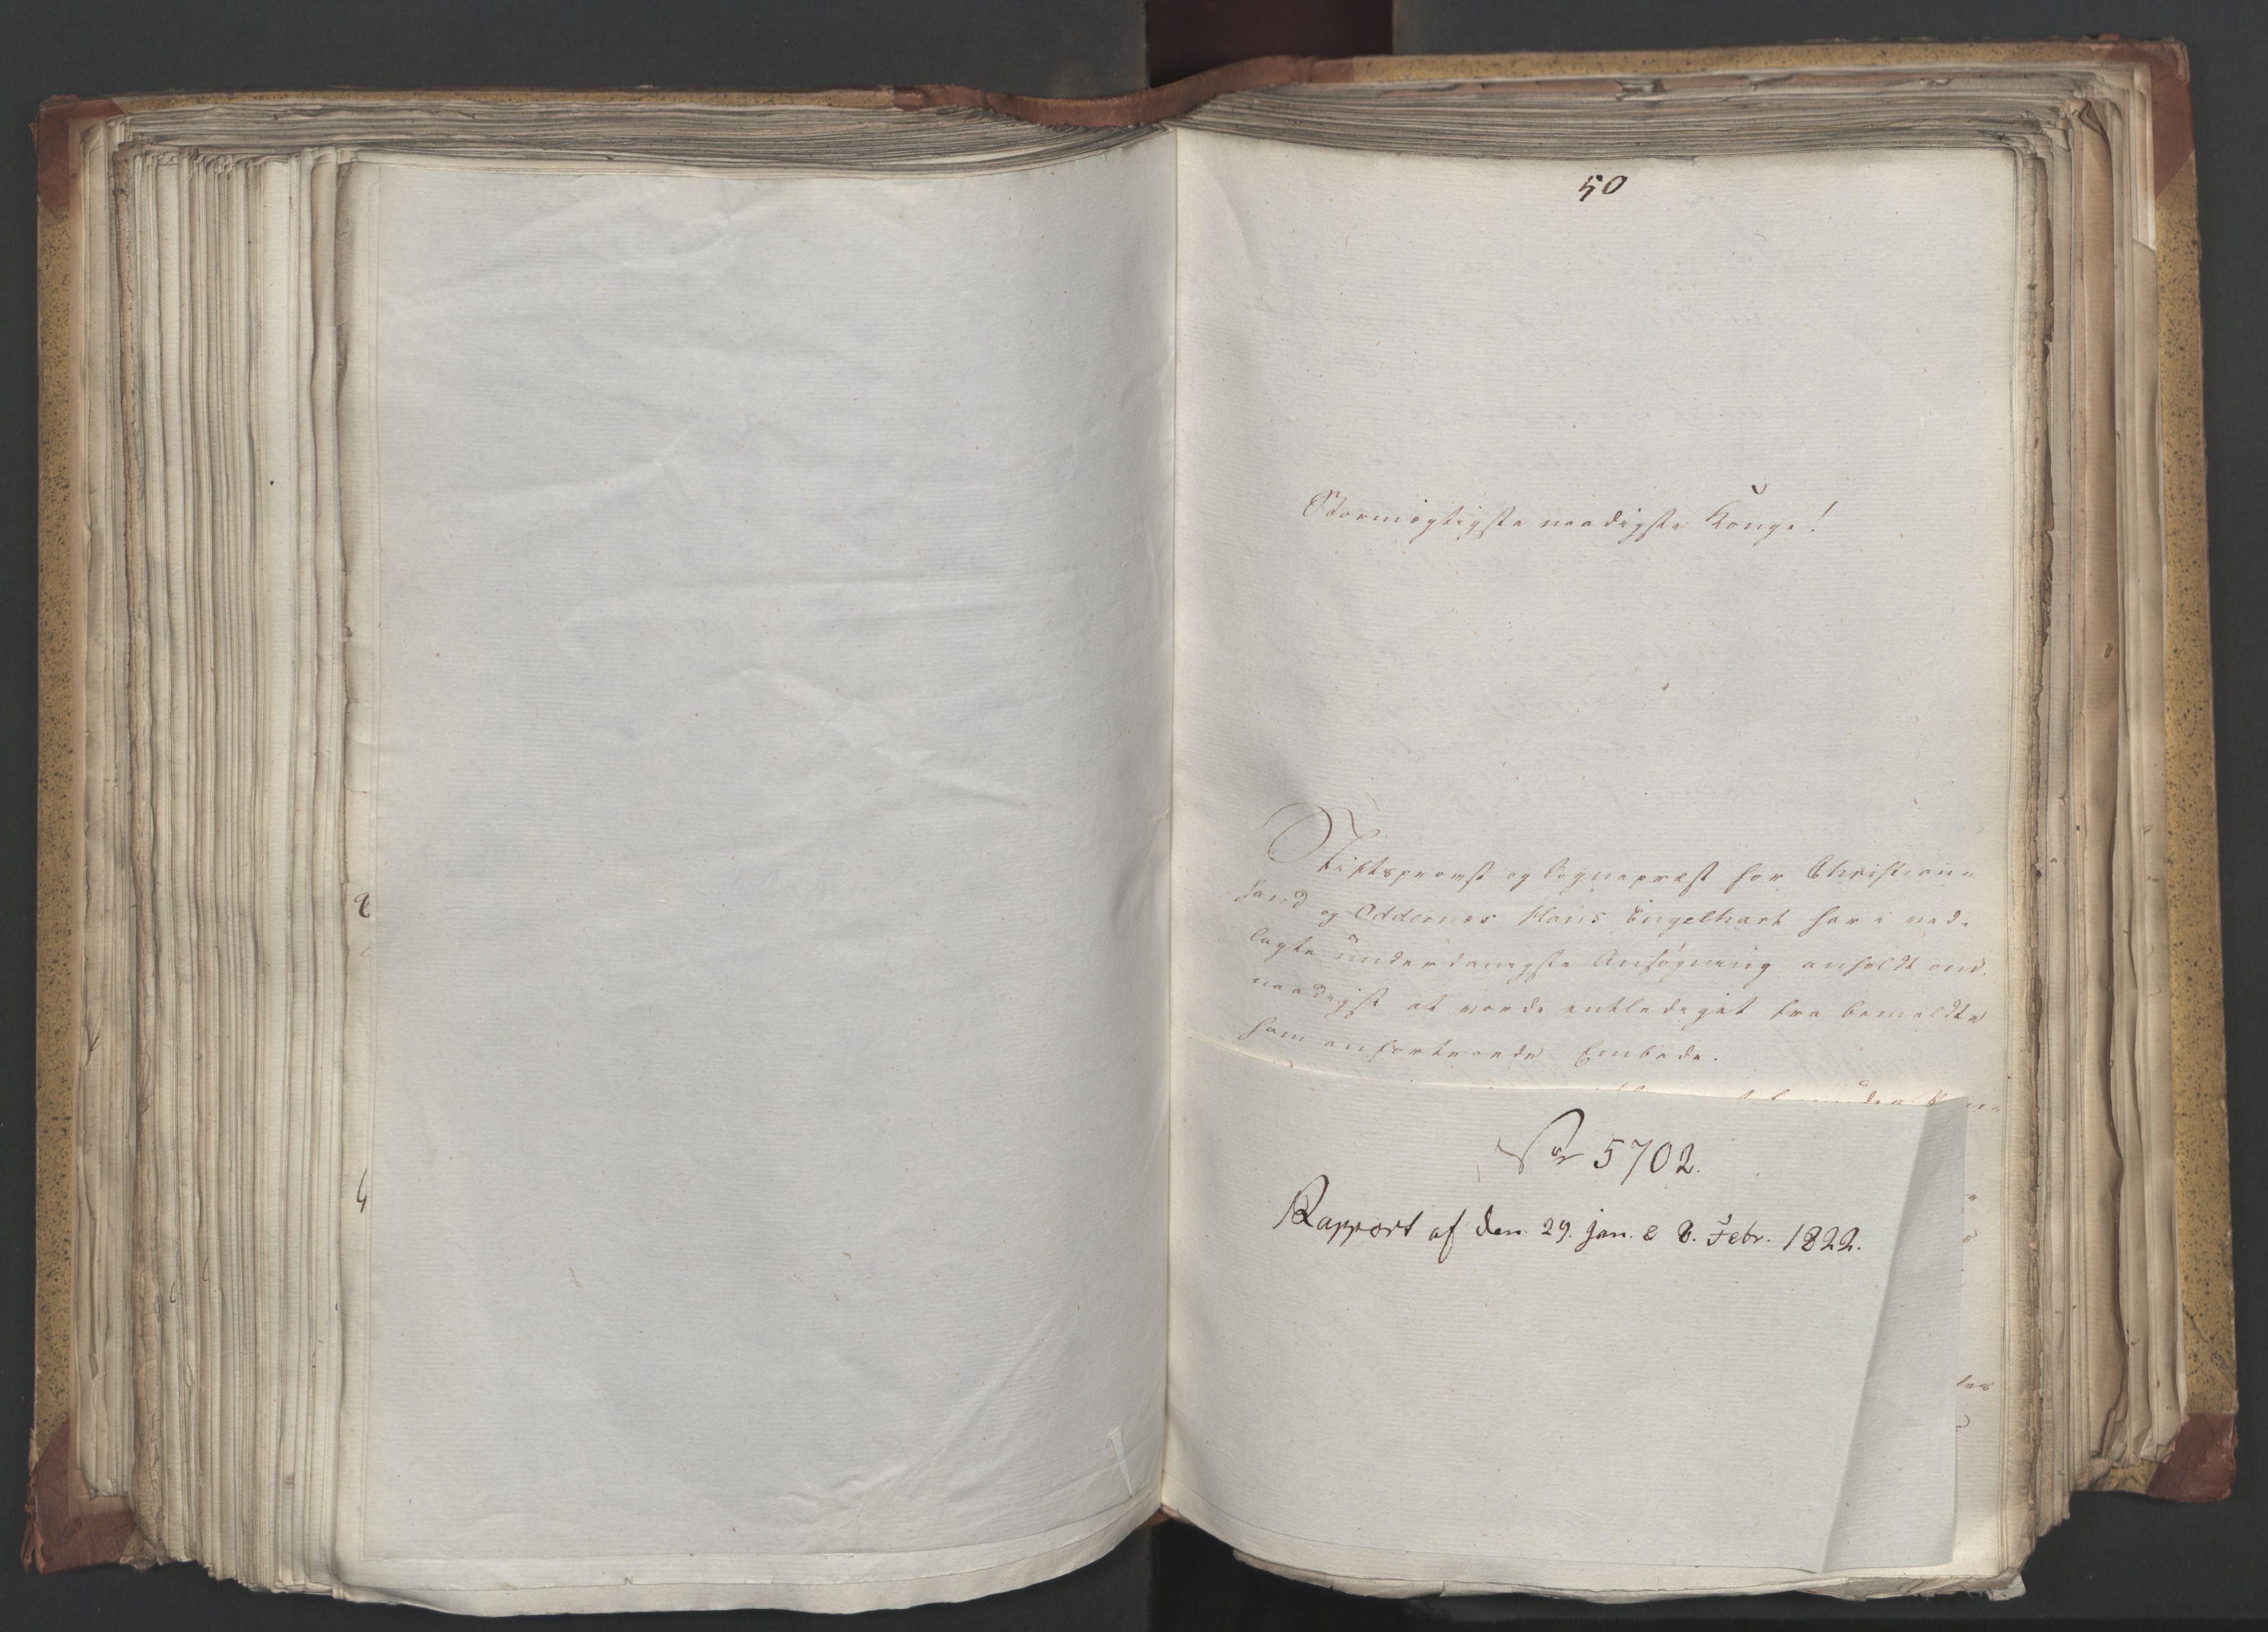 50
Stormægtigste naadigste Konge!
Stiftsprovst og Sognepræst for Christian-
sand og Oddernes Hans Engelhart har i ved-
lagte underdanigste Ansøgning anholdt om
naadigst at vorde entlediget fra bemeldte
ham anfortroede Embede.
No 5702.
Rapport af den 29. Jan. & 8. Febr. 1822.